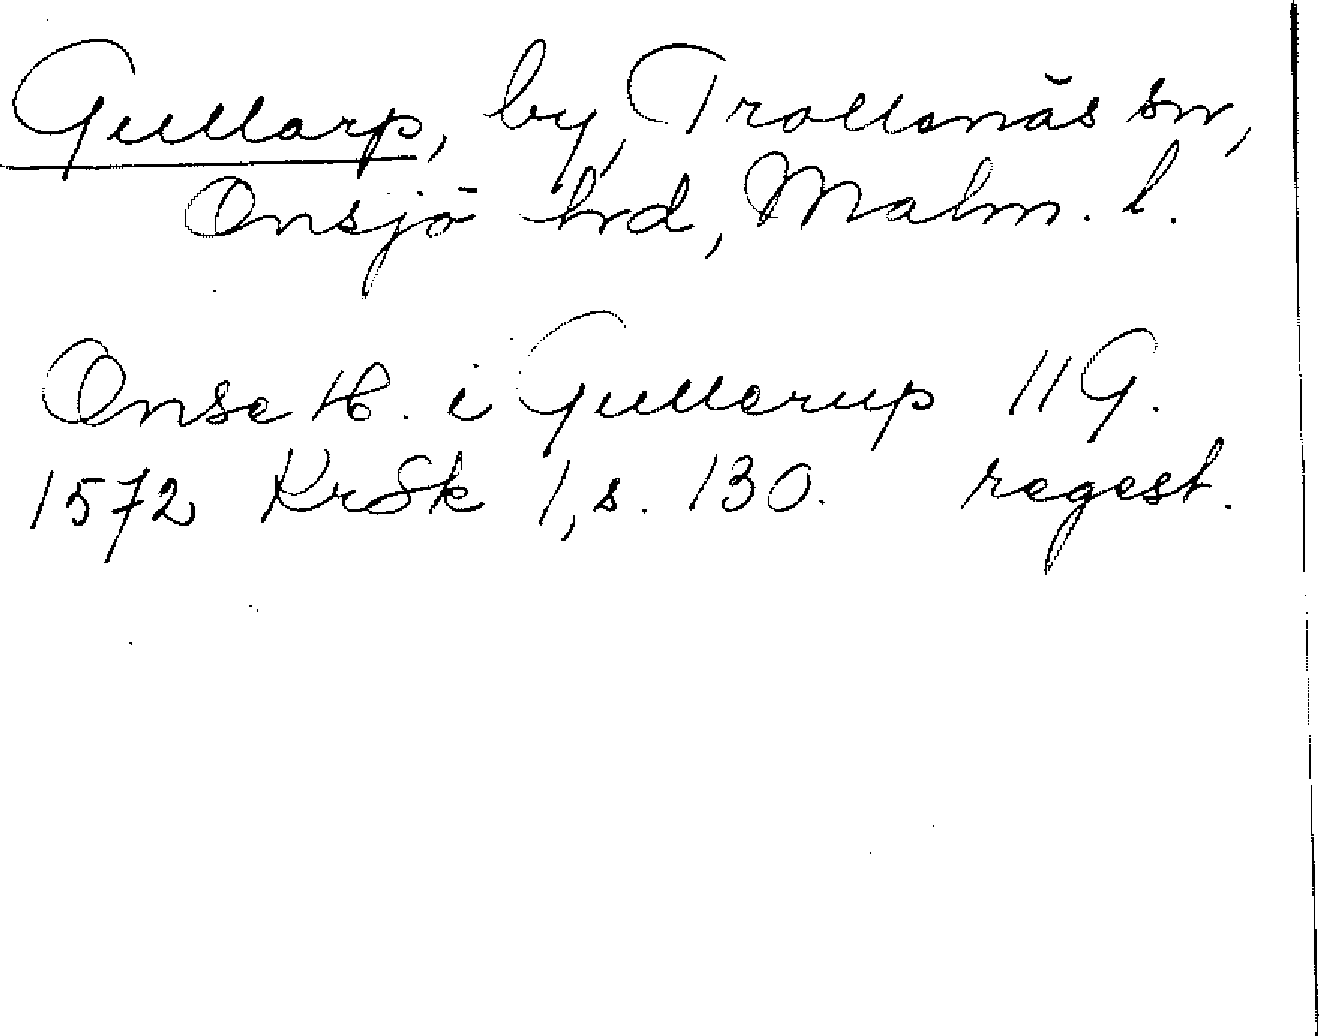 Gullarp, by, Trollenäs sn,
Onsjö hrd, Malm. l.
Onse H. i Gullerup 11 G.
1572 KrSk 1, s. 130. regest.